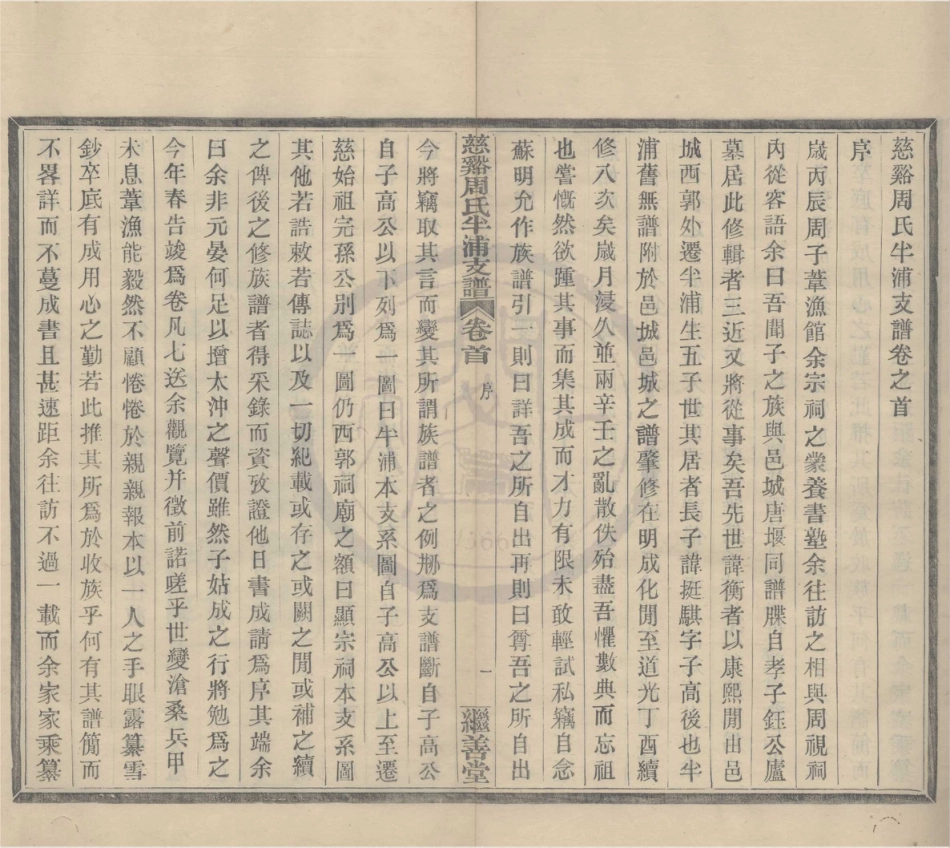 慈谿周氏半浦支譜卷之首
序
歲丙辰周子葦漁館余宗祠之蒙養書塾余往訪之相與周視祠
內從容語余曰吾聞子之族與邑城唐堰同譜牒自孝子鈺公廬
墓居此修輯者三近又將從事矣吾先世諱衡者以康熙閒由邑
城西郭外遷半浦生五子世其居者長子諱挺騏字子高後也半
浦舊無譜附於邑城邑城之譜肇修在明成化閒至道光丁酉續
修八次矣歲月浸久並兩辛壬之亂散佚殆盡吾懼數典而忘祖
也嘗慨然欲踵其事而集其成而才力有限未敢輕試私竊自念
蘇明允作族譜引一則曰詳吾之所自出再則曰尊吾之所自出
慈谿周氏半浦支譜 卷首 序 一 繼善堂
今將竊取其言而變其所謂族譜者之例刱爲支譜斷自子高公
自子高公以下列爲一圖曰半浦本支系圖自子高公以上至遷
慈始祖完孫公別爲一圖仍西郭祠廟之額曰顯宗祠本支系圖
其他若誥敕若傳誌以及一切紀載或存之或闕之閒或補之續
之俾後之修族譜者得采錄而資攷證他日書成請爲序其端余
曰余非元晏何足以增太沖之聲價雖然子姑成之行將勉爲之
今年春告竣爲卷凡七送余觀覽幷徵前諾嗟乎世變滄桑兵甲
未息葦漁能毅然不顧惓惓於親親報本以一人之手眼露纂雪
鈔卒底有成用心之勤若此推其所爲於收族乎何有其譜簡而
不畧詳而不蔓成書且甚速距余往訪不過一載而余家家乘纂